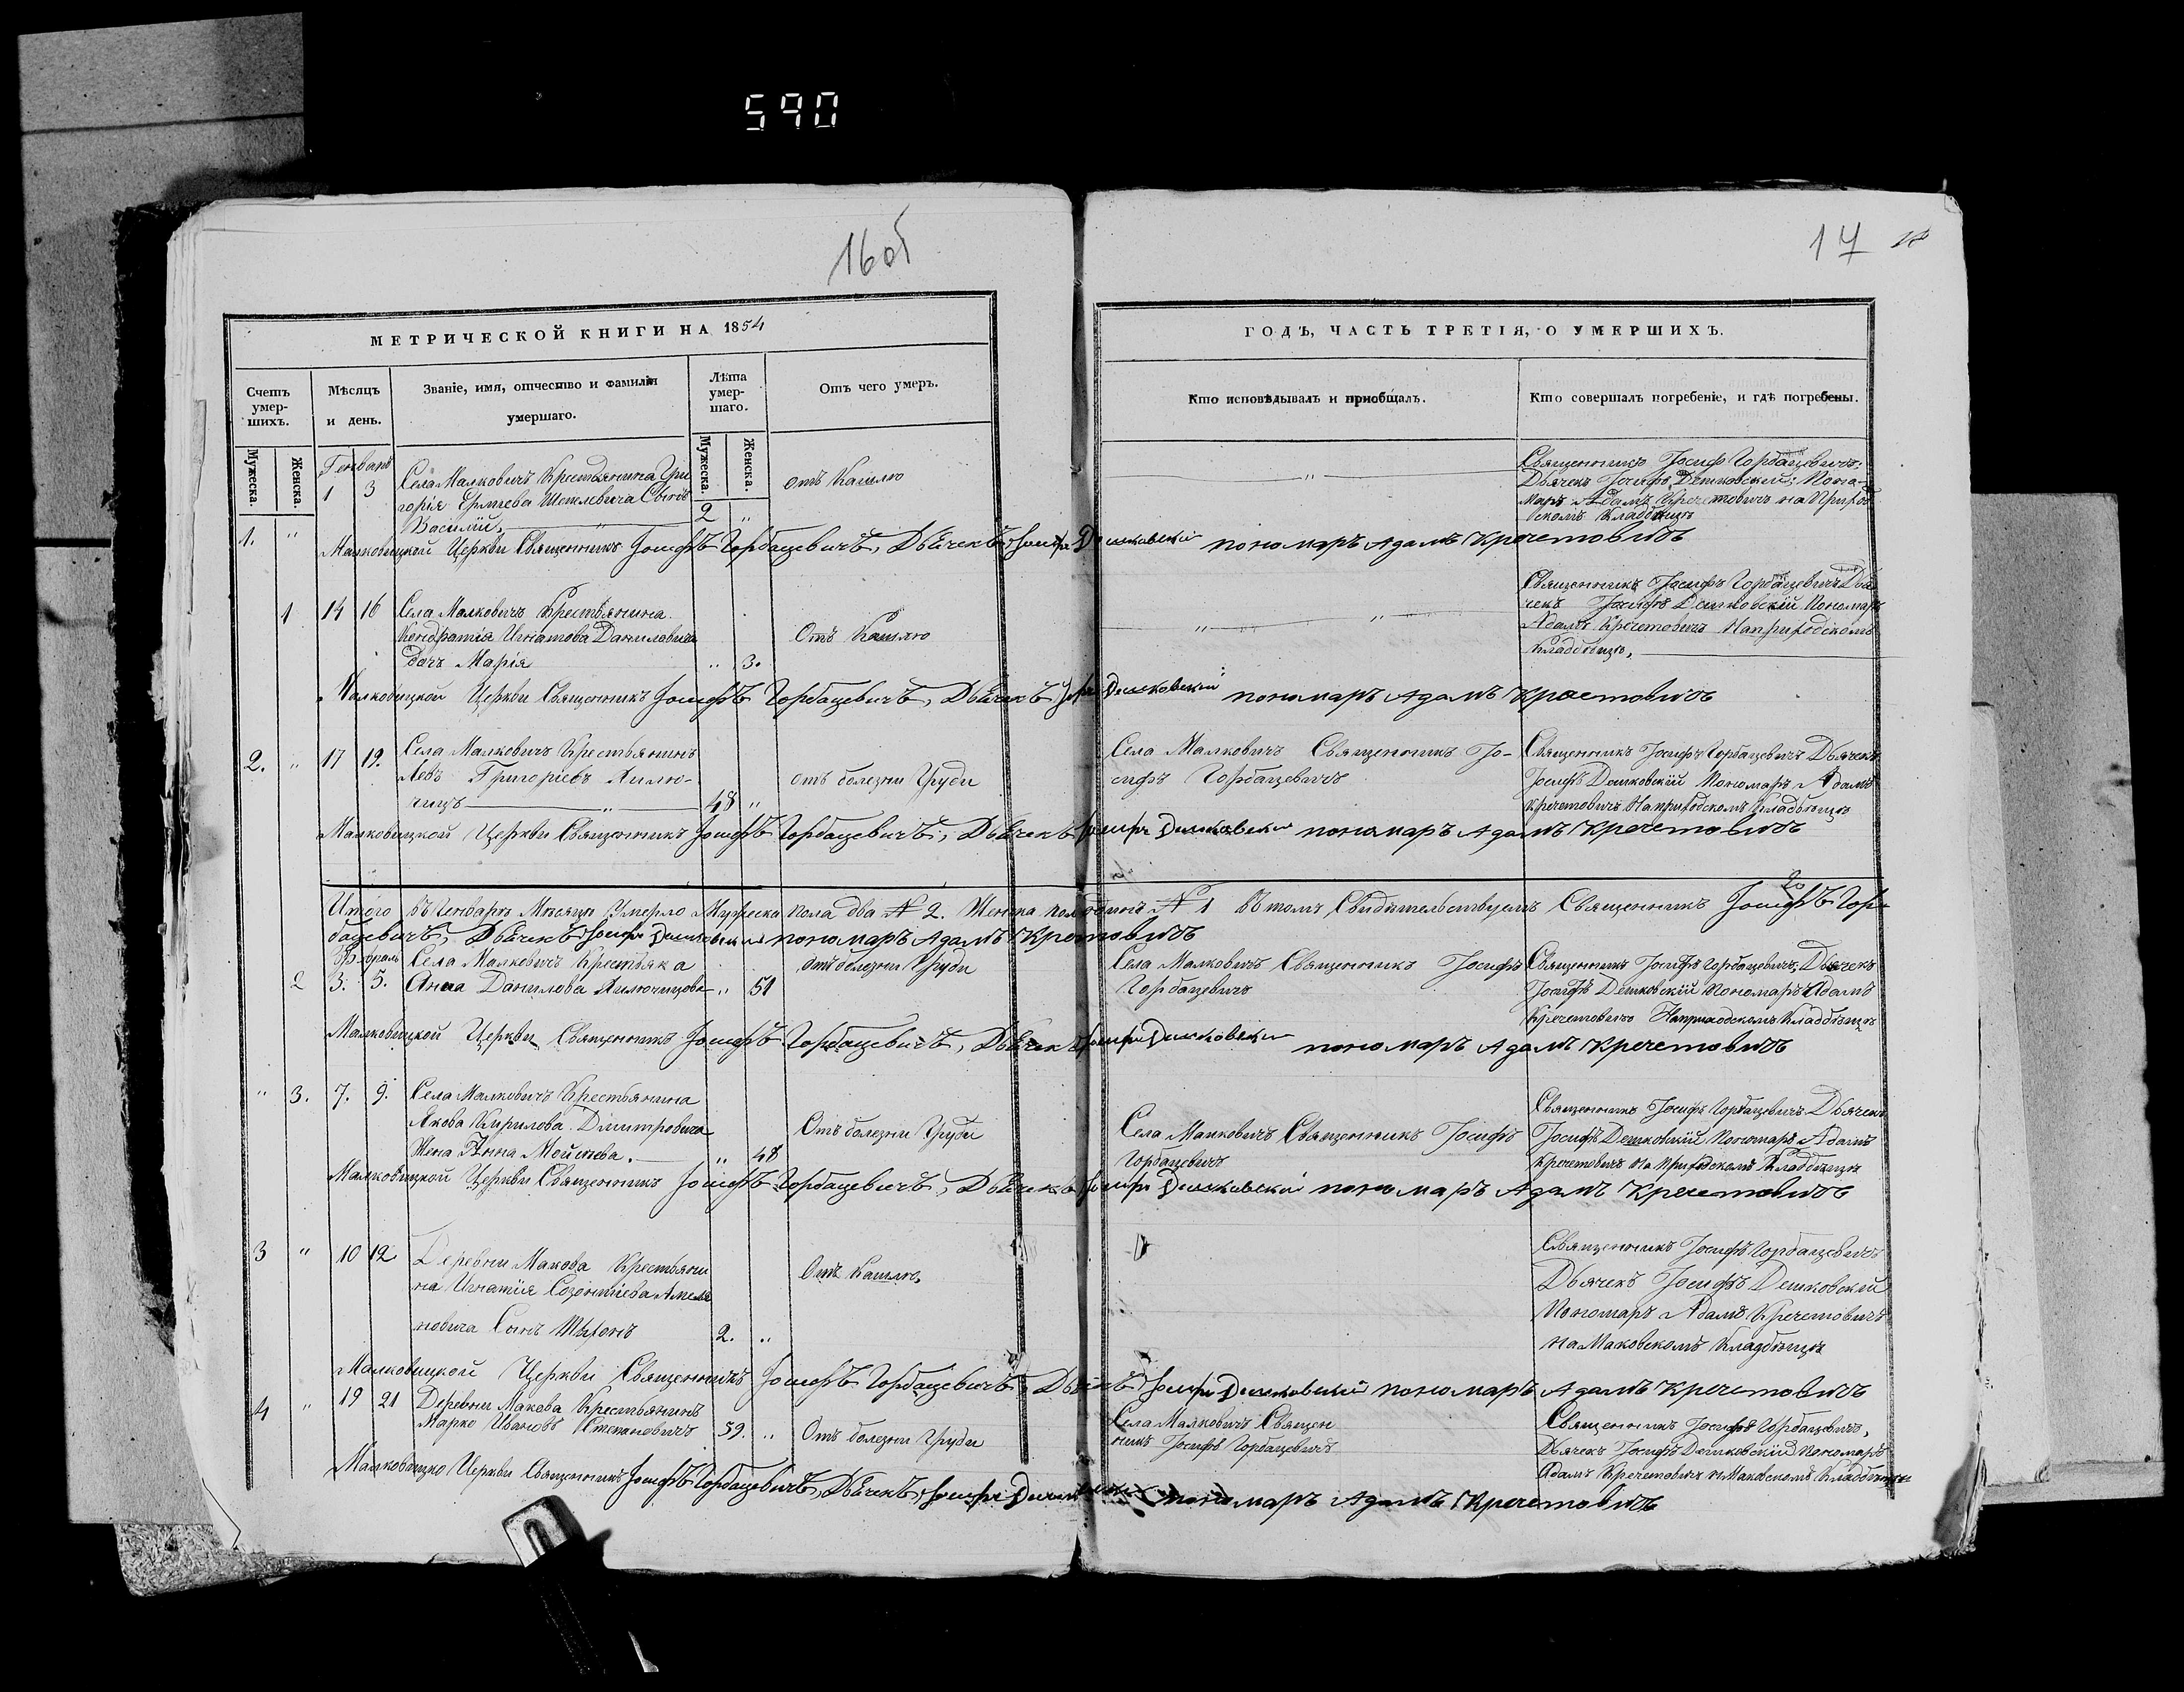 590
16об
17
МЕТРИЧЕСКОЙ КНИГИ НА 1854
ГОДЪ, ЧАСТЬ ТРЕТІЯ, О УМЕРШИХЪ.
Счетъ умер-шихъ.
Мѣсяцъ и день.
Званіе, имя, отчество и фамилія умершаго.
Лѣта умер-шаго.
Отъ чего умеръ.
Кто исповѣдывалъ и пріобщалъ.
Кто совершалъ погребеніе, и гдѣ погребены.
Мужеска.
Женска.
Мужеска.
Женска.
Генварь
1. " 1 3
Села Малковичъ Крестьянина Гри
горія Ермѣева Шепелевича Сынъ
Василій, 2 "
отъ Кашлю
Священникъ Іосифъ Горбацевичъ:
Дьячекъ Іосифъ Дешковскій: Поно-
марь Адамъ Кречетовичъ на Приход
скомъ Кладбищѣ
Малковицкой Церкви Священникъ Іосифъ Горбацевичъ, Дьячекъ Іосифъ Дешковскій пономаръ Адамъ Кречетовичъ
1 14 16
Села Малковичъ Крестьянина
Кондратія Игнатова Даниловича
дочь Марія " 3.
Отъ Кашлю
Священникъ Іосифъ Горбацевичъ Дья
чекъ Іосифъ Дешковскій Пономарь
Адамъ Кречетовичъ На приходскомъ
Кладбищѣ,
Малковицкой Церкви Священникъ Іосифъ Горбацевичъ, Дьячекъ Іосифъ Дешковскій пономаръ Адамъ Кречетовичъ
2. " 17 19.
Села Малковичъ Крестьянинъ
Левъ Григоріевъ
48 "
отъ болезни Груди
Села Малковичъ Священникъ Іо-
сифъ Горбацевичъ
Священникъ Іосифъ Горбацевичъ Дьячекъ
Іосифъ Дешковскій Пономарь Адамъ
Кречетовичъ На приходскомъ Кладбищѣ
Малковицкой Церкви Священникъ Іосифъ Горбацевичъ, Дьячекъ Іосифъ Дешковскій пономаръ Адамъ Кречетовичъ
Итого въ Генварѣ Мѣсяцѣ Умерло Мужеска пола два № 2. Женска пола одинъ № 1 Въ томъ Свидѣтельствуемъ Священникъ Іосифъ Гор-
бацевичъ, Дьячекъ Іосифъ Дешковскій пономаръ Адамъ Кречетовичъ
Февраль
2 3. 5.
Села Малковичъ Крестьянка
Анна Данилова
" 51
отъ болезни Груди
Села Малковичъ Священникъ Іосифъ
Горбацевичъ
Священникъ Іосифъ Горбацевичъ, Дьячекъ
Іосифъ Дешковскій Пономарь Адамъ
Кречетовичъ На приходскомъ Кладбищѣ
Малковицкой Церкви Священникъ Іосифъ Горбацевичъ, Дьячекъ Іосифъ Дешковскій пономаръ Адамъ Кречетовичъ
" 3. 7. 9.
Села Малковичъ Крестьянина
Якова Кирилова Димтровича
Жена Анна Мойсѣева. " 48
Отъ болезни Груди
Села Малковичъ Священникъ Іосифъ
Горбацевичъ
Священникъ Іосифъ Горбацевичъ Дьячекъ
Іосифъ Дешковскій Пономарь Адамъ
Кречетовичъ На Приходскомъ Кладбищѣ
Малковицкой Церкви Священникъ Іосифъ Горбацевичъ, Дьячекъ Іосифъ Дешковскій пономаръ Адамъ Кречетовичъ
3 " 10 12
Деревни Макова Крестьяни
на Игнатія Созонтіева Амеля
новича Сынъ 2. "
Отъ Кашлю,
Священникъ Іосифъ Горбацевичъ
Дьячекъ Іосифъ Дешковскій
Пономарь Адамъ Кречетовичъ
на Маковскомъ Кладбищѣ
Малковицкой Церкви Священникъ Іосифъ Горбацевичъ, Дьячекъ Іосифъ Дешковскій пономаръ Адамъ Кречетовичъ
4 " 19 21
Деревни Макова Крестьянинъ
Марко Ивановъ Степановичъ 59. "
Отъ болезни Груди
Села Малковичъ Священ
никъ Іосифъ Горбацевичъ
Священникъ Іосифъ Горбацевичъ,
Дьячекъ Іосифъ Дешковскій Пономарь
Адамъ Кречетовичъ Маковскомъ Кладбищѣ
Малковицкой Церкви Священникъ Іосифъ Горбацевичъ, Дьячекъ, Іосифъ Дешковскій пономаръ Адамъ Кречетовичъ